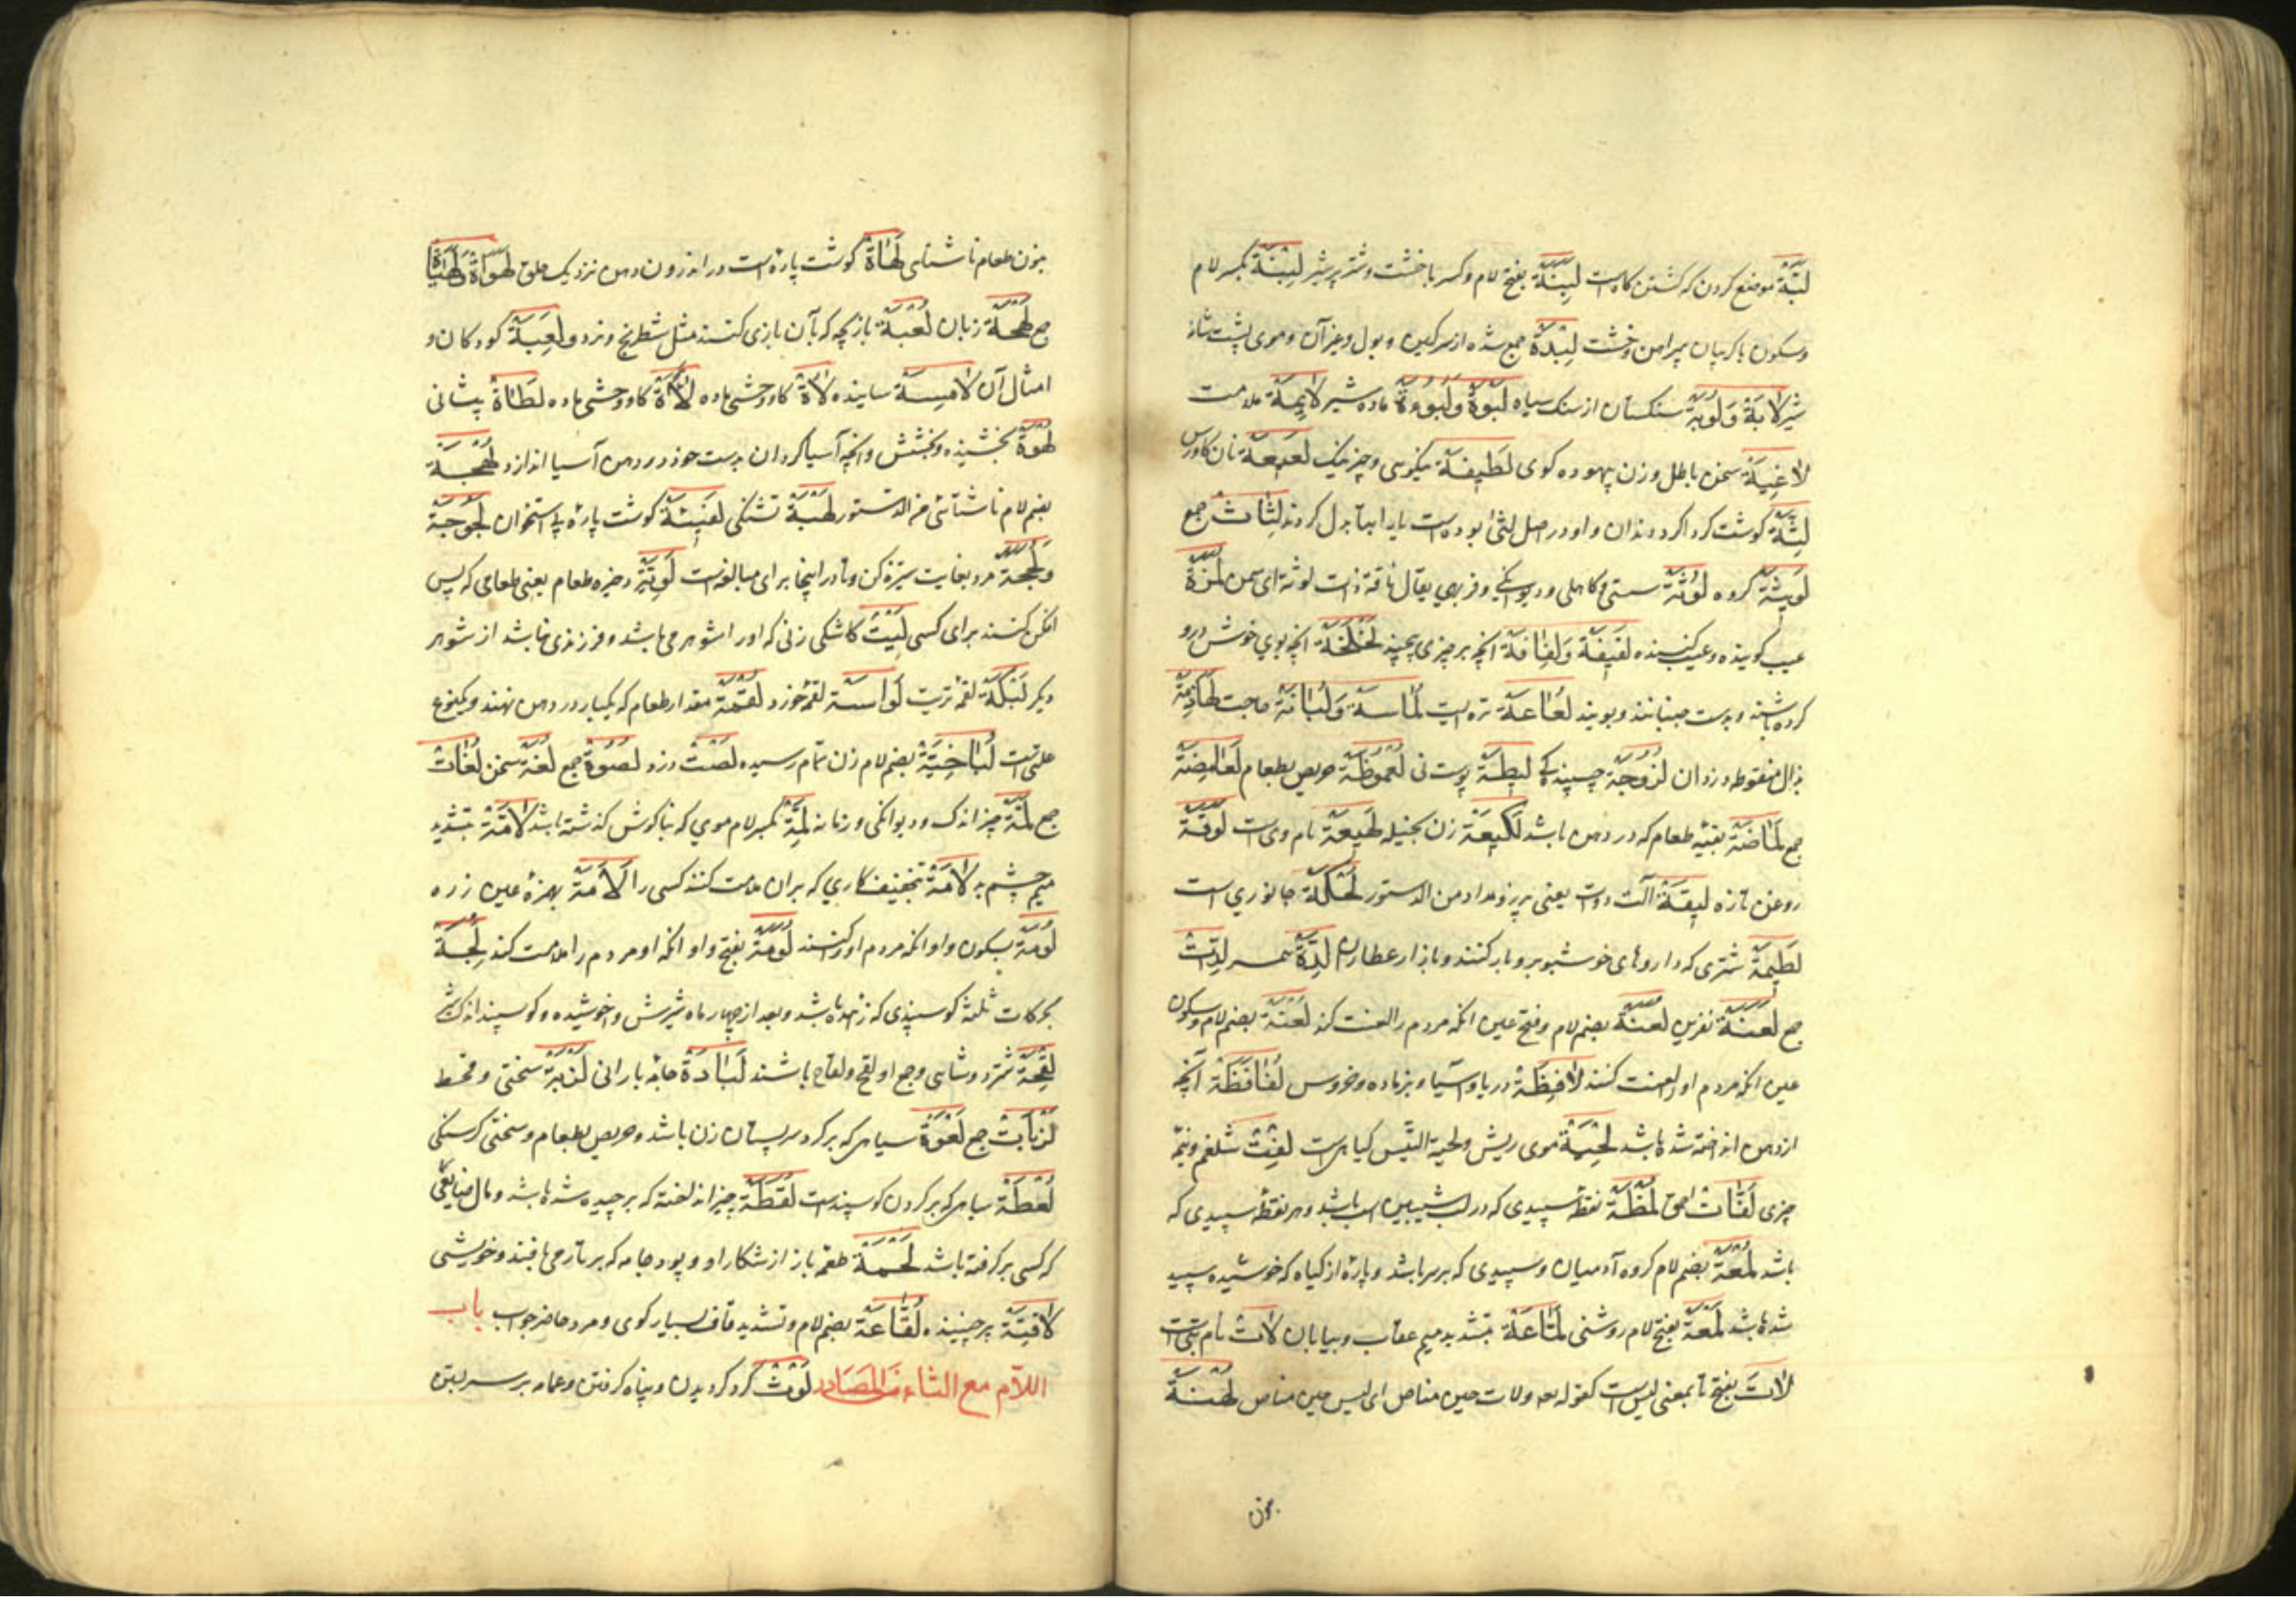 لَبَّةٌ موضع کردن که کشتن کاه است لَبِنَةٌ بفتح لام وکسر با خشت و شتر پر شیر لِبْنَةٌ بکسر لام
وسکون با کریبان پیراهن وخشت لِبْدَةٌ جمع شده از سرکین وبول وغیرآن وموی پشت شانهٔ
شیر لَابَةٌ وَلُوبَةٌ سنکستان از سنک سیاه لَبْوَةٌ وَلَبُوَةٌ ماده شیر لَایِمَةٌ ملامت
لَاغِیَةٌ سخن باطل وزن بیهوده کوی لَطِیفَةٌ نیکویی وچیز نیک لَعِیعَةٌ نان کاورس
لِثَةٌ کوشت کرداکرد دندان واو در اصل لثی بوده است یا را بتا بدل کردند لِثَاتٌ جمع
لَوِیثَةٌ کروه لُوثَةٌ سستی وکاهلی ودیوانکی وفربهی یقال ناقة ذات لوثة ای سمن لُمَزَةٌ
عیب کوینده وعیب کننده لَفِیفَةٌ وَلِفَافَةٌ انچه بر چیزی پیچند لَخْلَخَةٌ انچه بوی خوش درو
کرده باشند وبدست جنبانند وبویند لُعَاعَةٌ تره ایست لُمَاسَةٌ وَلُبَانَةٌ حاجت لَهَاذِمَةٌ
بذال منقوطه دزدان لُزُوجَةٌ چسپندکی لِیطَةٌ پوست نی لُعْمُوظَةٌ حریص بطعام لَعَامِظَةٌ
جمع لُمَاضَةٌ بقیه طعام که در دهن باشد لَکِیعَةٌ زن بخیله لَهِیعَةٌ نام وی است لُوقَةٌ
روغن تازه لِیقَةٌ آلت دوات یعنی پرز ومداد من الدستور لُحَکَةٌ جانوری است
لَطِیمَةٌ شتری که داروهای خوشبو برو بار کنند وبازار عطاران لِدَةٌ همسر لِدَاتٌ
جمع لَعْنَةٌ نفرین لُعَنَةٌ بضم لام وفتح عین انکه مردم را لعنت کند لُعْنَةٌ بضم لام وسکون
عین انکه مردم اورا لعنت کنند لَافِظَةٌ دریا واسیا وبز ماده وخروس لُفَاظَةٌ آنچه
از دهن انداخته شده باشد لِحْیَةٌ موی ریش ولحیة التیس کیاهی است لِفْتٌ شلغم ونیمهٔ
چیزی لَفَاتٌ احمق لُمْظَةٌ نقطهٔ سپیدی که در لب شیبین اسب باشد وهر نقطهٔ سپیدی که
باشد لُمْعَةٌ بضم لام کروه آدمیان وسپیدی که بر سر باشد وپارهٔ از کیاه که خوشیده سپید
شده باشد لَمْعَةٌ بفتح لام روشنی لَمَّاعَةٌ بتشدید میم عقاب وبیابان لَاتٌ نام بتی است
لَاتَ بفتح تا بمعنی لیس است کقوله تعه ولات حین مناص ای لیس حین مناص لُهْنَةٌ
چون
چون طعام ناشتایی لَهَاةٌ کوشت پارهٔ است در اندرون دهن نزدیک حلق لَهَوَاةٌ لَهَیَاةٌ
جمع لَهْجَةٌ زبان لُعْبَةٌ بازیچه که بآن بازی کنند مثل شطرنج ونرد و لَعِبَةٌ کودکان و
امثال آن لَامِسَةٌ ساینده لَاةٌ کاو وحشی ماده لَآةٌ کاو وحشی ماده لَطَاةٌ پیشانی
لُهْوَةٌ بخشیده وبخشش وانچه آسیا کردان بدست خود در دهن آسیا اندازد لُهْجَةٌ
بضم لام ناشتائی من الدستور لُهْبَةٌ تشنکی لَفِیئَةٌ کوشت پارهٔ بی استخوان لَجُوجَةٌ
وَلُجَجَةٌ مرد بغایت ستیزه کن وتا در اینجا برای مبالغه است لَوِیَّةٌ ذخیره طعام یعنی طعامی که پس
افکن کنند برای کسی لَیْتَ کاشکی زنی که اورا شوهر می باشد وفرزندی باشد از شوهر
دیکر لَبِیکَةٌ لقمهٔ تریت لَوَاسَةٌ لقمه خورد لُقْمَةٌ مقدار طعام که یکبار در دهن نهند ویکنوع
علتی است لُبَاخِیَّةٌ بضم لام زن تمام رسیده لَصْتٌ دزد لُصُوتٌ جمع لُغَةٌ سخن لُغَاتٌ
جمع لَمَّةٌ چیز اندک ودیوانکی وزنانه لِمَّةٌ بکسر لام موی که از بناکوش کذشته باشد لَامَّةٌ بتشدید
میم چشم بد لَامَةٌ بتخفیف کاری که بران ملامت کنند کسی را لَأْمَةٌ بهمزهٔ عین زره
لُومَةٌ بسکون واو انکه مردم اورا ملامت کنند لُوَمَةٌ بفتح واو انکه او مردم را ملامت کند لَجْبَةٌ
بحرکات ثلثه کوسپندی که زاده باشد وبعد از چهار ماه شیرش واخوشیده وکوسپند اندک شیر
لِقْحَةٌ شتر دوشایی وجمع او لقح ولقاح باشند لُبَّادَةٌ جامهٔ بارانی لَزْبَةٌ سختی وقحط
لَزْبَاتٌ جمع لَعْوَةٌ سیاهی که بر کرد سر پستان زن باشد وحریص بطعام وسختی کرسنکی
لُعْطَةٌ سیاهی که بر کردن کوسپند است لُقَطَةٌ چیز انداخته که برچیده شده باشد ومال ضایعی
که کسی بر کرفته باشد لُحْمَةٌ طعمهٔ باز از شکار او وپود جامه که بر تار می بافند وخویشی
لَاقِیَةٌ برچیننده لُقَّاعَةٌ بضم لام وتشدید قاف بسیار کوی ومرد حاضر جواب باب
اللّام مع الثاء من المصادر لَوْثٌ کرد کردیدن وپناه کرفتن وعمامه بر سر بستن